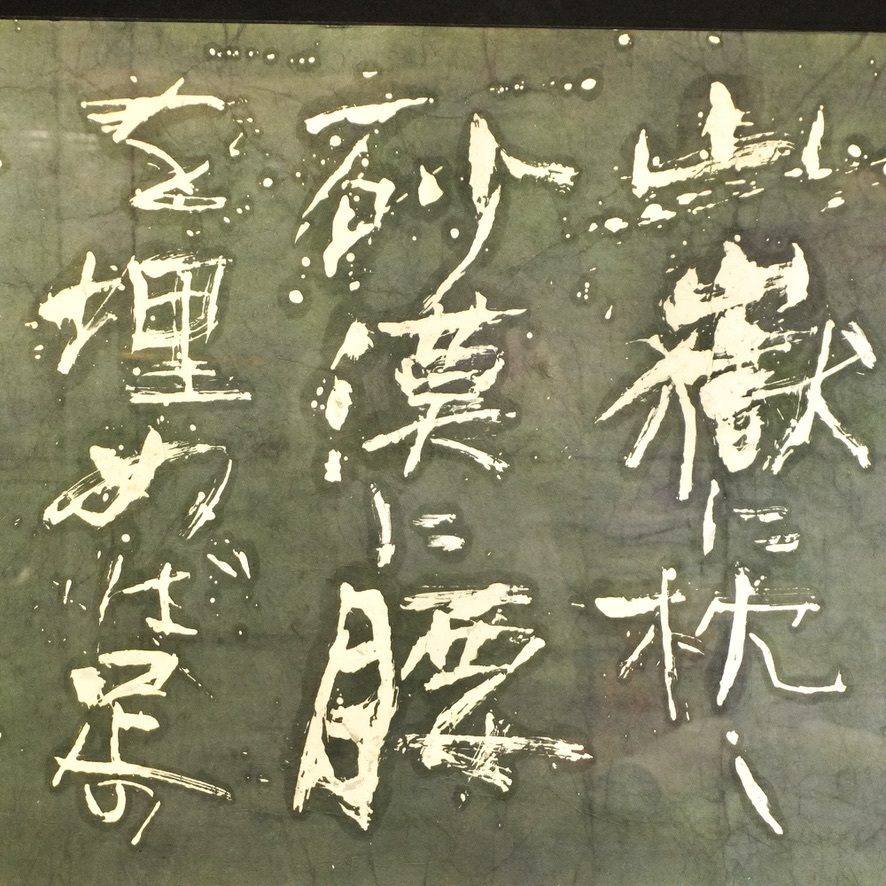 山嶽に枕し
砂漠に腰
を埋めば足の